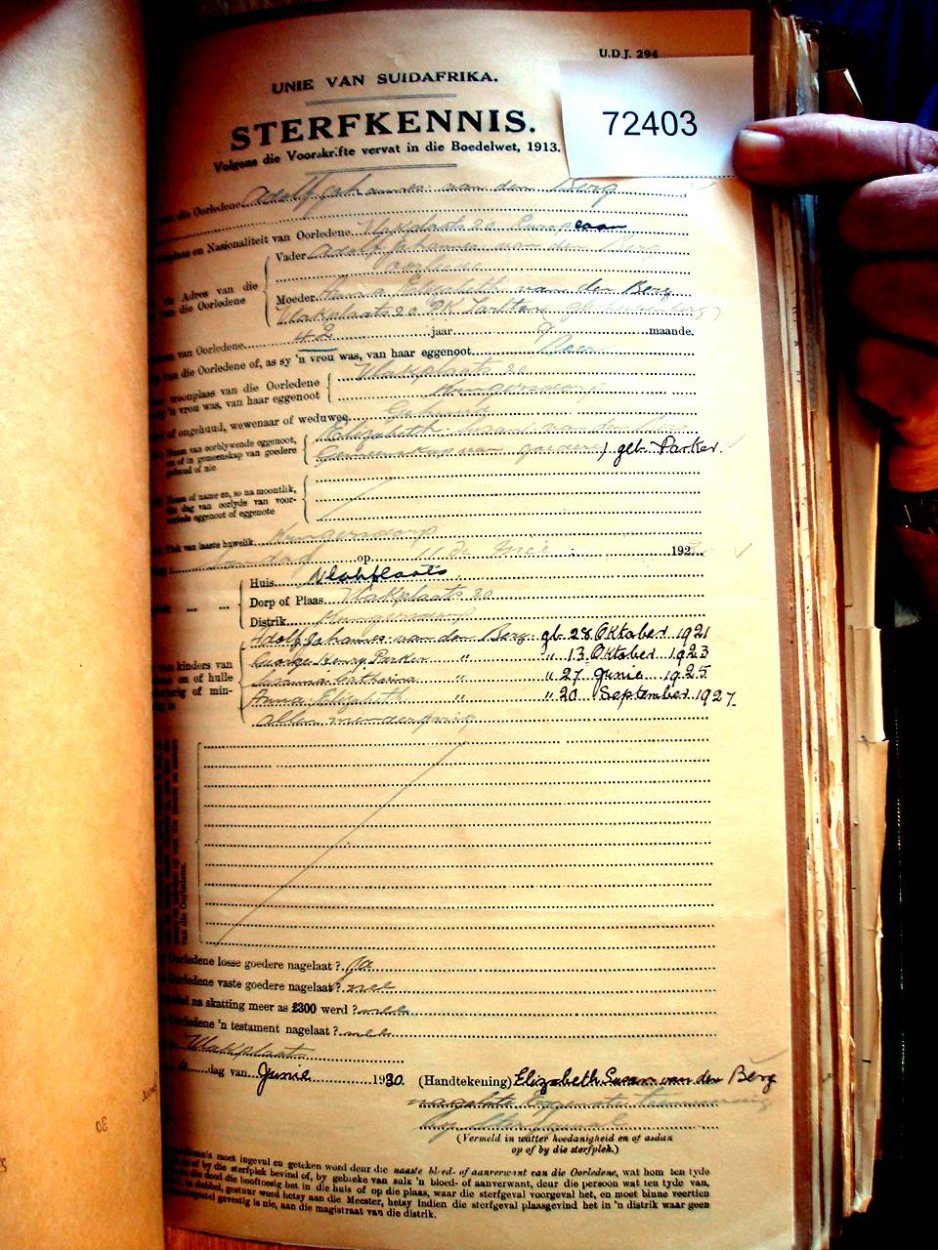 U.D.J. 294
72403
UNIE VAN SUIDAFRIKA.
STERFKENNIS.
Volgens die Voorskrifte vervat in die Boedelwet, 1913.
die Oorledene Adolf Johannes van den Berg
en Nasionaliteit van Oorledene. Vlakplaats 20 Europeaan
Vader Adolf Johannes van den Berg
Adres van die
van die Oorledene
Oorledene
Moeder Anna Elizabeth van den Berg
Vlakplaats 20 PK Tarlton
van Oorledene. 42 jaar 9 maande.
van die Oorledene of, as sy 'n vrou was, van haar eggenoot. Boer
woonplaas van die Oorledene
'n vrou was, van haar eggenoot
Vlakplaats 20
Krugersdorp
of ongehuud, wewenaar of weduwee Gehuud
Naam van oorblywende eggenoot,
en of in gemeenskap van goedere
gehuud of nie
Elizabeth Susan van den Berg
Gemeenskap van goedere) geb. Parker.
Naam of name en, so na moontlik,
die dag van oorlyde van voor-
oorlede eggenoot of eggenote
Plek van laaste huwelik Krugersdorp
op 11de Mei 192
Huis Vlakplaats
Dorp of Plaas Vlakplaats 20
Distrik Krugersdorp
Adolf Johannes van den Berg gb. 28 Oktober 1921
George Henry Parker " " 13 Oktober 1923
Susanna Catharina " " 27 Junie 1925
Anna Elizabeth " " 20 September 1927
kinders van
en of hulle
of min-
allen minderjarig
van die Oorledene.
Oorledene losse goedere nagelaat? Ja
Oorledene vaste goedere nagelaat? nee
na skatting meer as £300 werd? nee
Oorledene 'n testament nagelaat? nee
Vlakplaats
dag van Junie 1930.
(Handtekening) Elizabeth Susan van den Berg
nagelate eggenote teenwoordig
(Vermeld in watter hoedanigheid en of asdan
op of by die sterfplek.)
moet ingevul en geteken word deur die naaste bloed- of aanverwant van die Oorledene, wat hom ten tyde
of by die sterfplek bevind of, by gebreke van sulk 'n bloed- of aanverwant, deur die persoon wat ten tyde van,
die dood die hooftoesig het in die huis of op die plaas, waar die sterfgeval voorgeval het, en moet binne veertien
dubbel, gestuur word hetsy aan die Meester, hetsy indien die sterfgeval plaasgevind het in 'n distrik waar geen
gevestig is nie, aan die magistraat van die distrik.